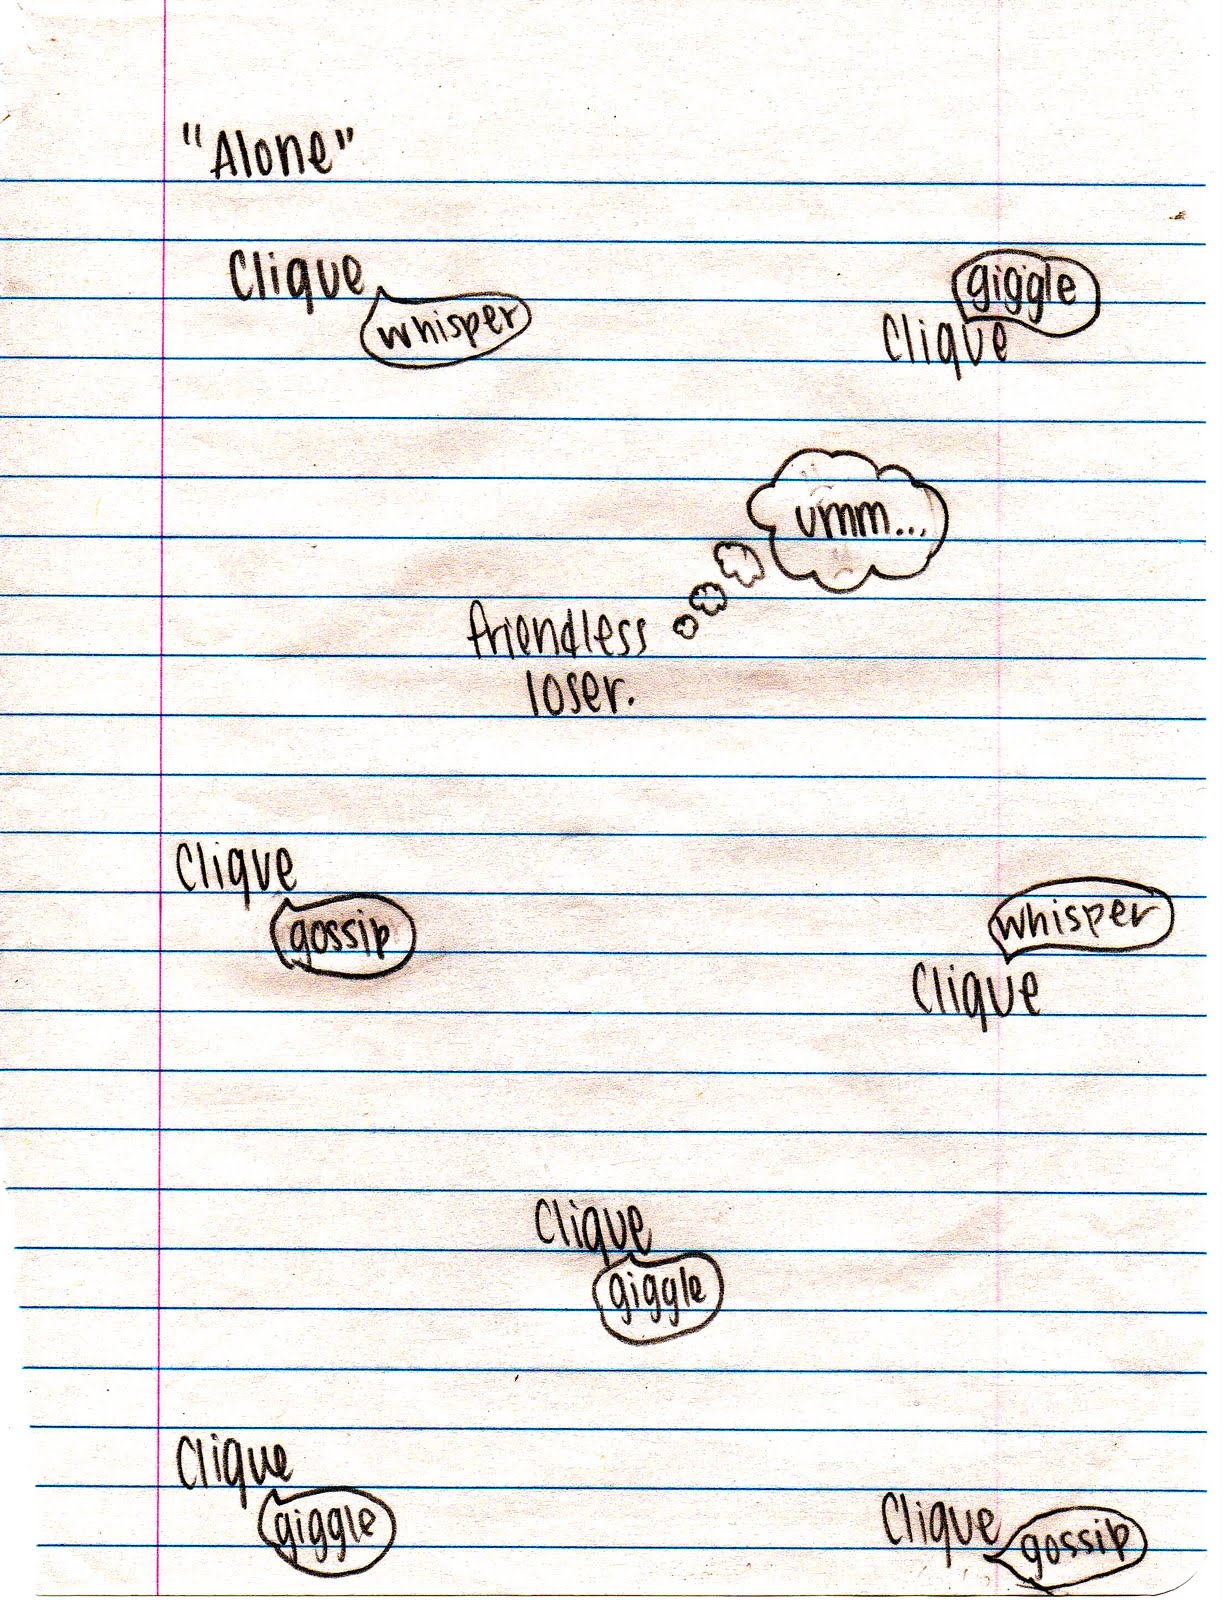 "Alone"
Clique
whisper
giggle
Clique
umm...
friendless
loser.
Clique
gossip
whisper
Clique
Clique
giggle
Clique
giggle
Clique
gossip